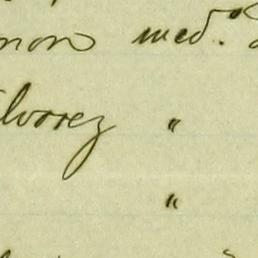 mon med.
lvarez "
"